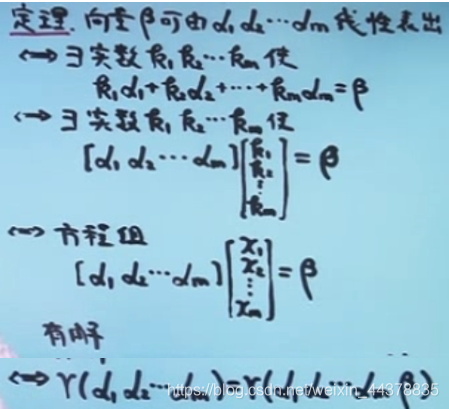 定理. 向量β可由α₁ α₂ ⋯ αm 线性表出
⟺ ∃ 实数 k₁ k₂ ⋯ km 使
k₁α₁+k₂α₂+⋯+kmαm=β
⟺ ∃ 实数 k₁ k₂ ⋯ km 使
[α₁ α₂ ⋯ αm] [k₁ k₂ ⋮ km] = β
⟺ 方程组
[α₁ α₂ ⋯ αm] [x₁ x₂ ⋮ xm] = β
有解
⟺ r(α₁ α₂ ⋯ αm)=r(α₁ α₂ ⋯ αm β)
https://blog.csdn.net/weixin_44378835